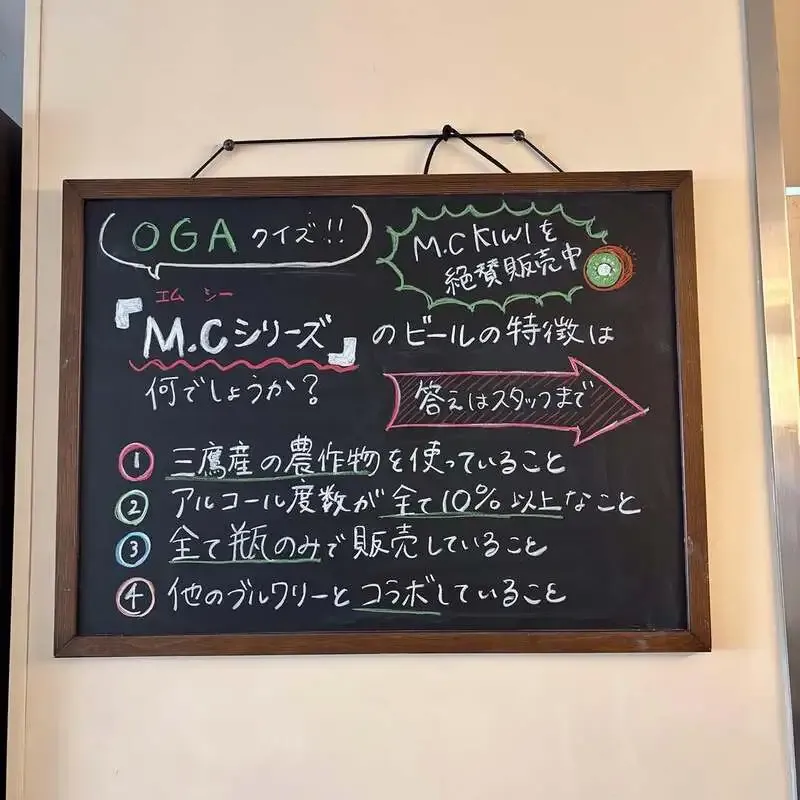 OGA クイズ!!
M.C KIWIを
絶賛販売中
エム シー
『M.Cシリーズ』のビールの特徴は
何でしょうか?
答えはスタッフまで
① 三鷹産の農作物を使っていること
② アルコール度数が全て10%以上なこと
③ 全て瓶のみで販売していること
④ 他のブルワリーとコラボしていること